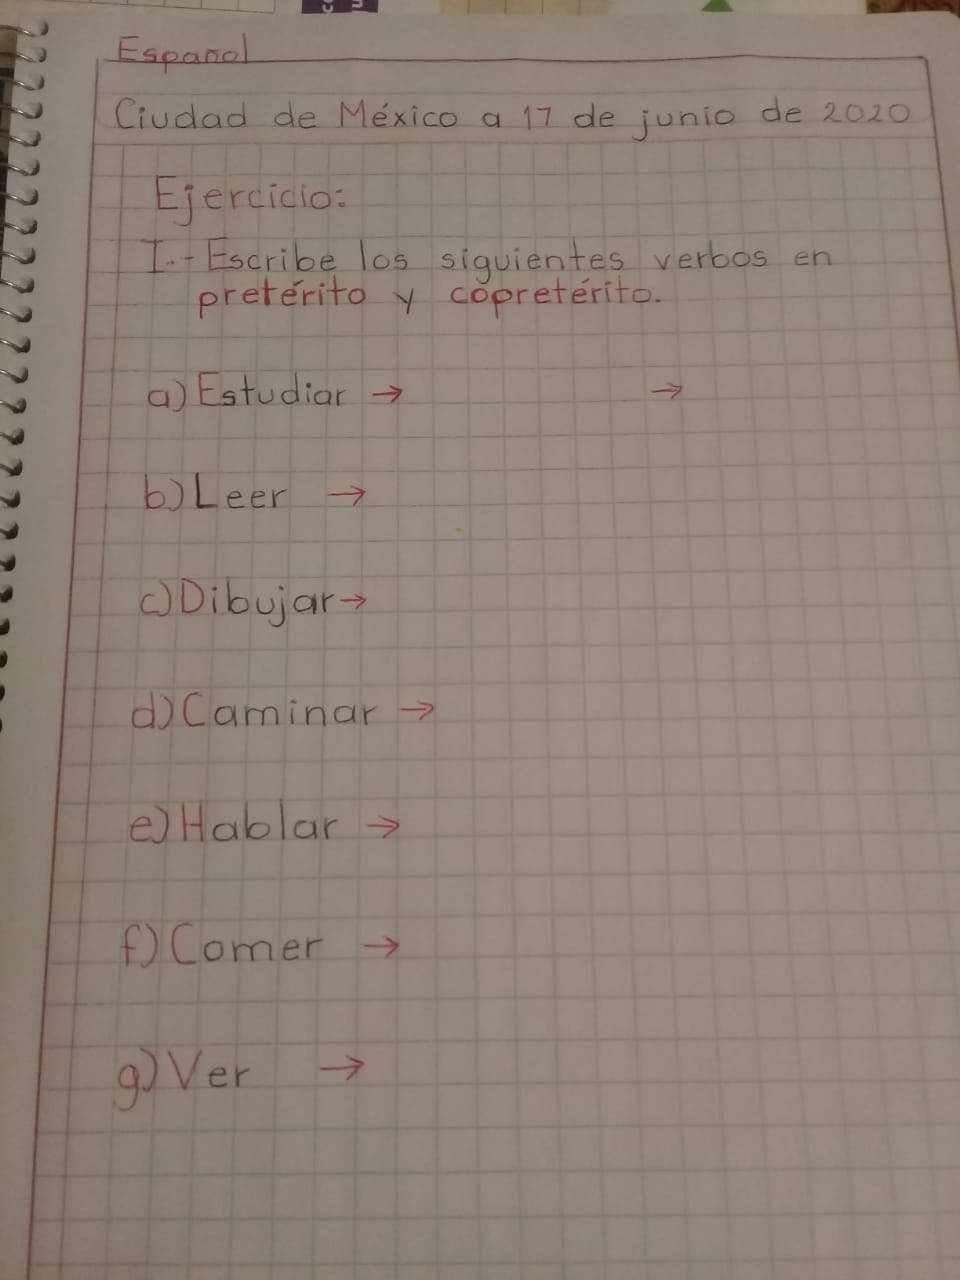 Español
Ciudad de México a 17 de junio de 2020
Ejercicio:
I.- Escribe los siguientes verbos en
pretérito y copretérito.
a) Estudiar → →
b) Leer →
c) Dibujar →
d) Caminar →
e) Hablar →
f) Comer →
g) Ver →